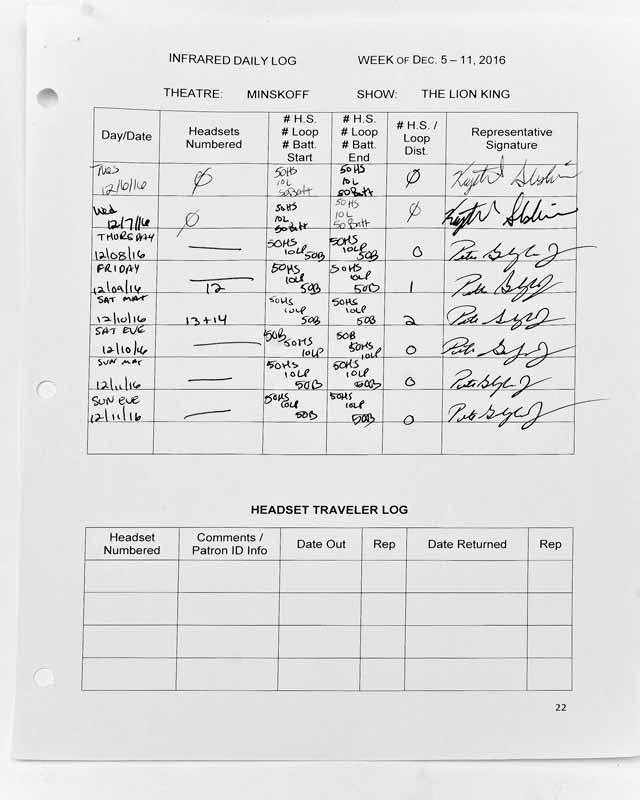 INFRARED DAILY LOG WEEK OF DEC. 5 – 11, 2016
THEATRE: MINSKOFF SHOW: THE LION KING
Day/Date Headsets Numbered # H.S. # Loop # Batt. Start # H.S. # Loop # Batt. End # H.S. / Loop Dist. Representative Signature
Tues 12/6/16 Ø 50HS 10L 50Batt 50HS 10L 50Batt Ø
Wed 12/7/16 Ø 50HS 10L 50Batt 50HS 10L 50Batt Ø
THURSDAY 12/08/16 — 50HS 10LP 50B 50HS 10LP 50B 0
FRIDAY 12/09/16 12 50HS 10LP 50B 50HS 10LP 50B 1
SAT MAT 12/10/16 13+14 50HS 10LP 50B 50HS 10LP 50B 2
SAT EVE 12/10/16 — 50B 50HS 10LP 50B 50HS 10LP 0
SUN MAT 12/11/16 — 50HS 10LP 50B 50HS 10LP 50B 0
SUN EVE 12/11/16 — 50HS 10LP 50B 50HS 10LP 50B 0
HEADSET TRAVELER LOG
Headset Numbered Comments / Patron ID Info Date Out Rep Date Returned Rep
22